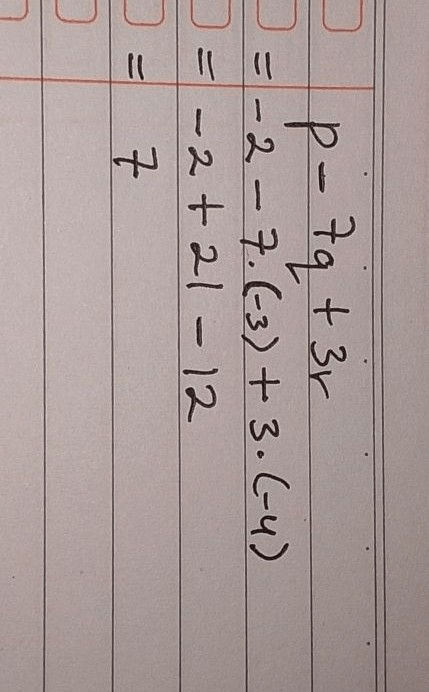 p - 7q + 3r
= -2 - 7.(-3) + 3.(-4)
= -2 + 21 - 12
= 7